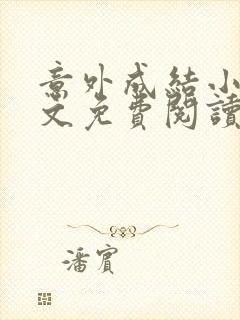 意外成結小
文免費閱讀
潘賓